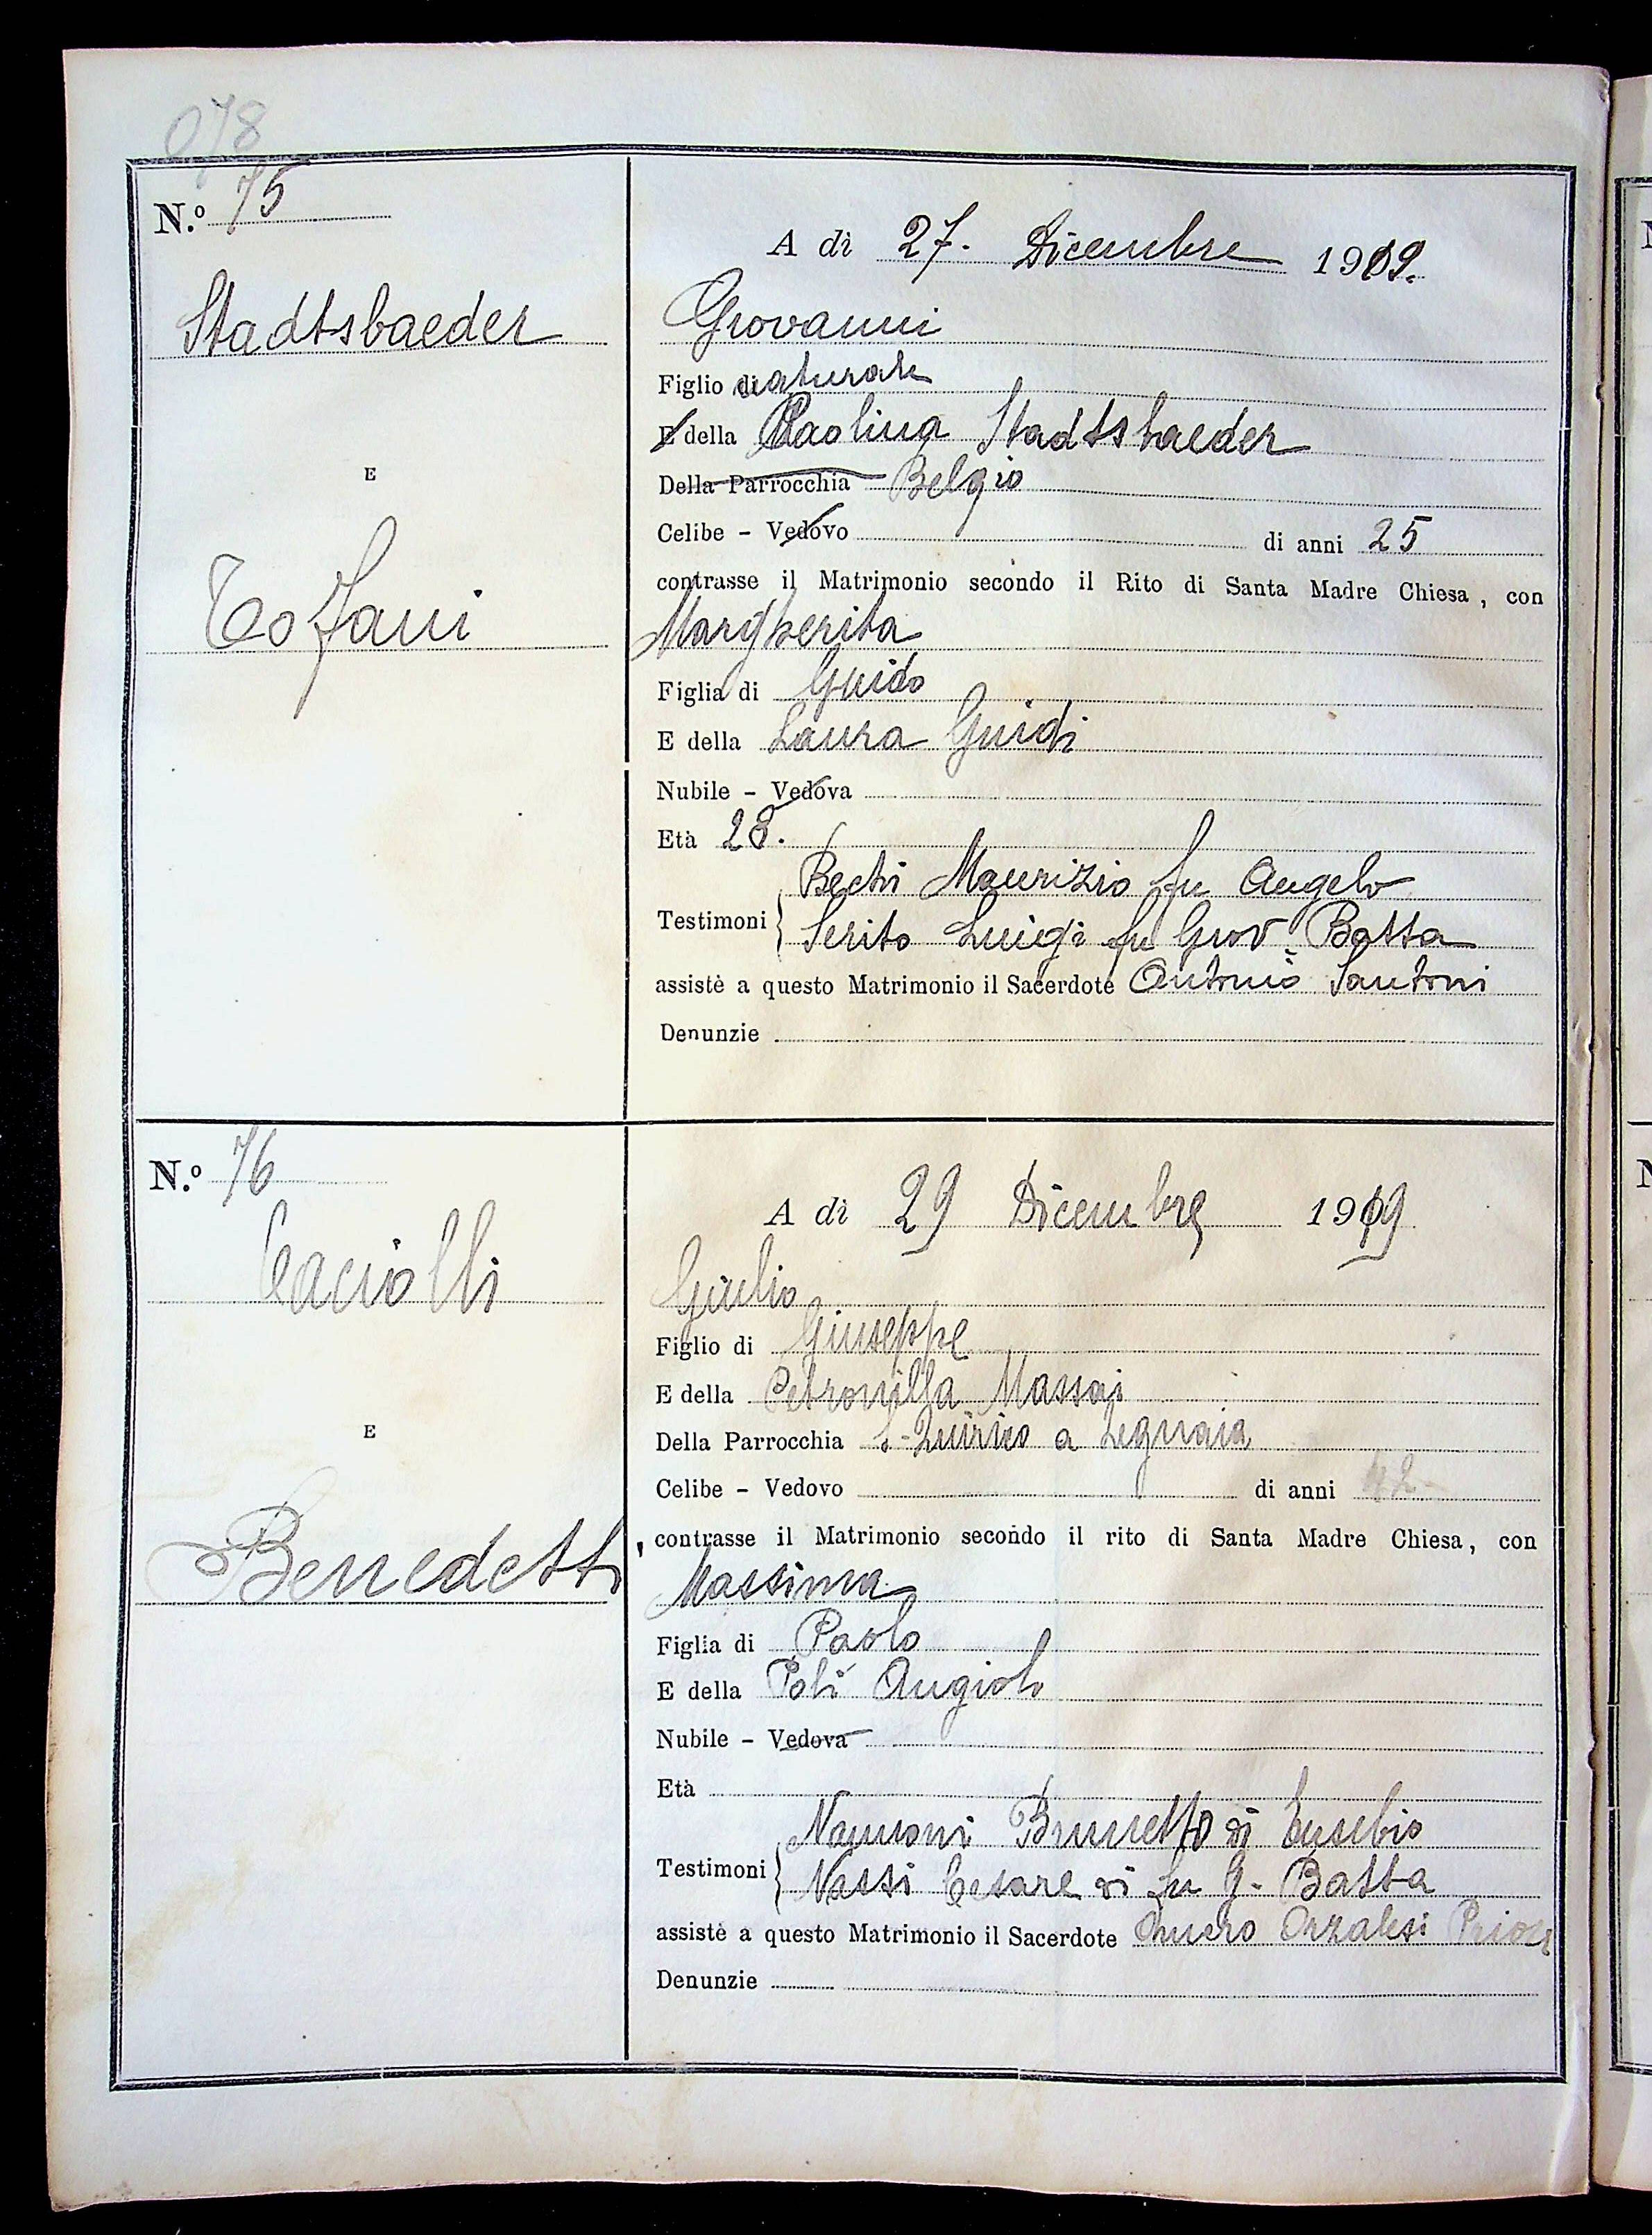 078
N.º 75
Stadtsbaeder
E
Tofani
A dì 27. Dicembre 1919.
Giovanni
Figlio di naturale
E della Paolina Stadtsbaeder
Della Parrocchia Belgio
Celibe - Vedovo di anni 25
contrasse il Matrimonio secondo il Rito di Santa Madre Chiesa, con
Margherita
Figlia di Guido
E della Laura Guidi
Nubile - Vedova
Età 28.
Bechi Maurizio fu Angelo
Testimoni
Serito Luigi fu Giov. Batta
assistè a questo Matrimonio il Sacerdote Antonio Santoni
Denunzie
N.º 76
Caciolli
E
Benedetti
A dì 29 Dicembre 1919
Giulio
Figlio di Giuseppe
E della Petronilla Massai
Della Parrocchia S. Quirico a Legnaia
Celibe - Vedovo di anni 42
contrasse il Matrimonio secondo il rito di Santa Madre Chiesa, con
Massima
Figlia di Paolo
E della Poli Angiola
Nubile - Vedova
Età
Nannoni Brunetto di Eusebio
Testimoni
Nassi Cesare di fu G. Batta
assistè a questo Matrimonio il Sacerdote Orzalesi Priore
Denunzie